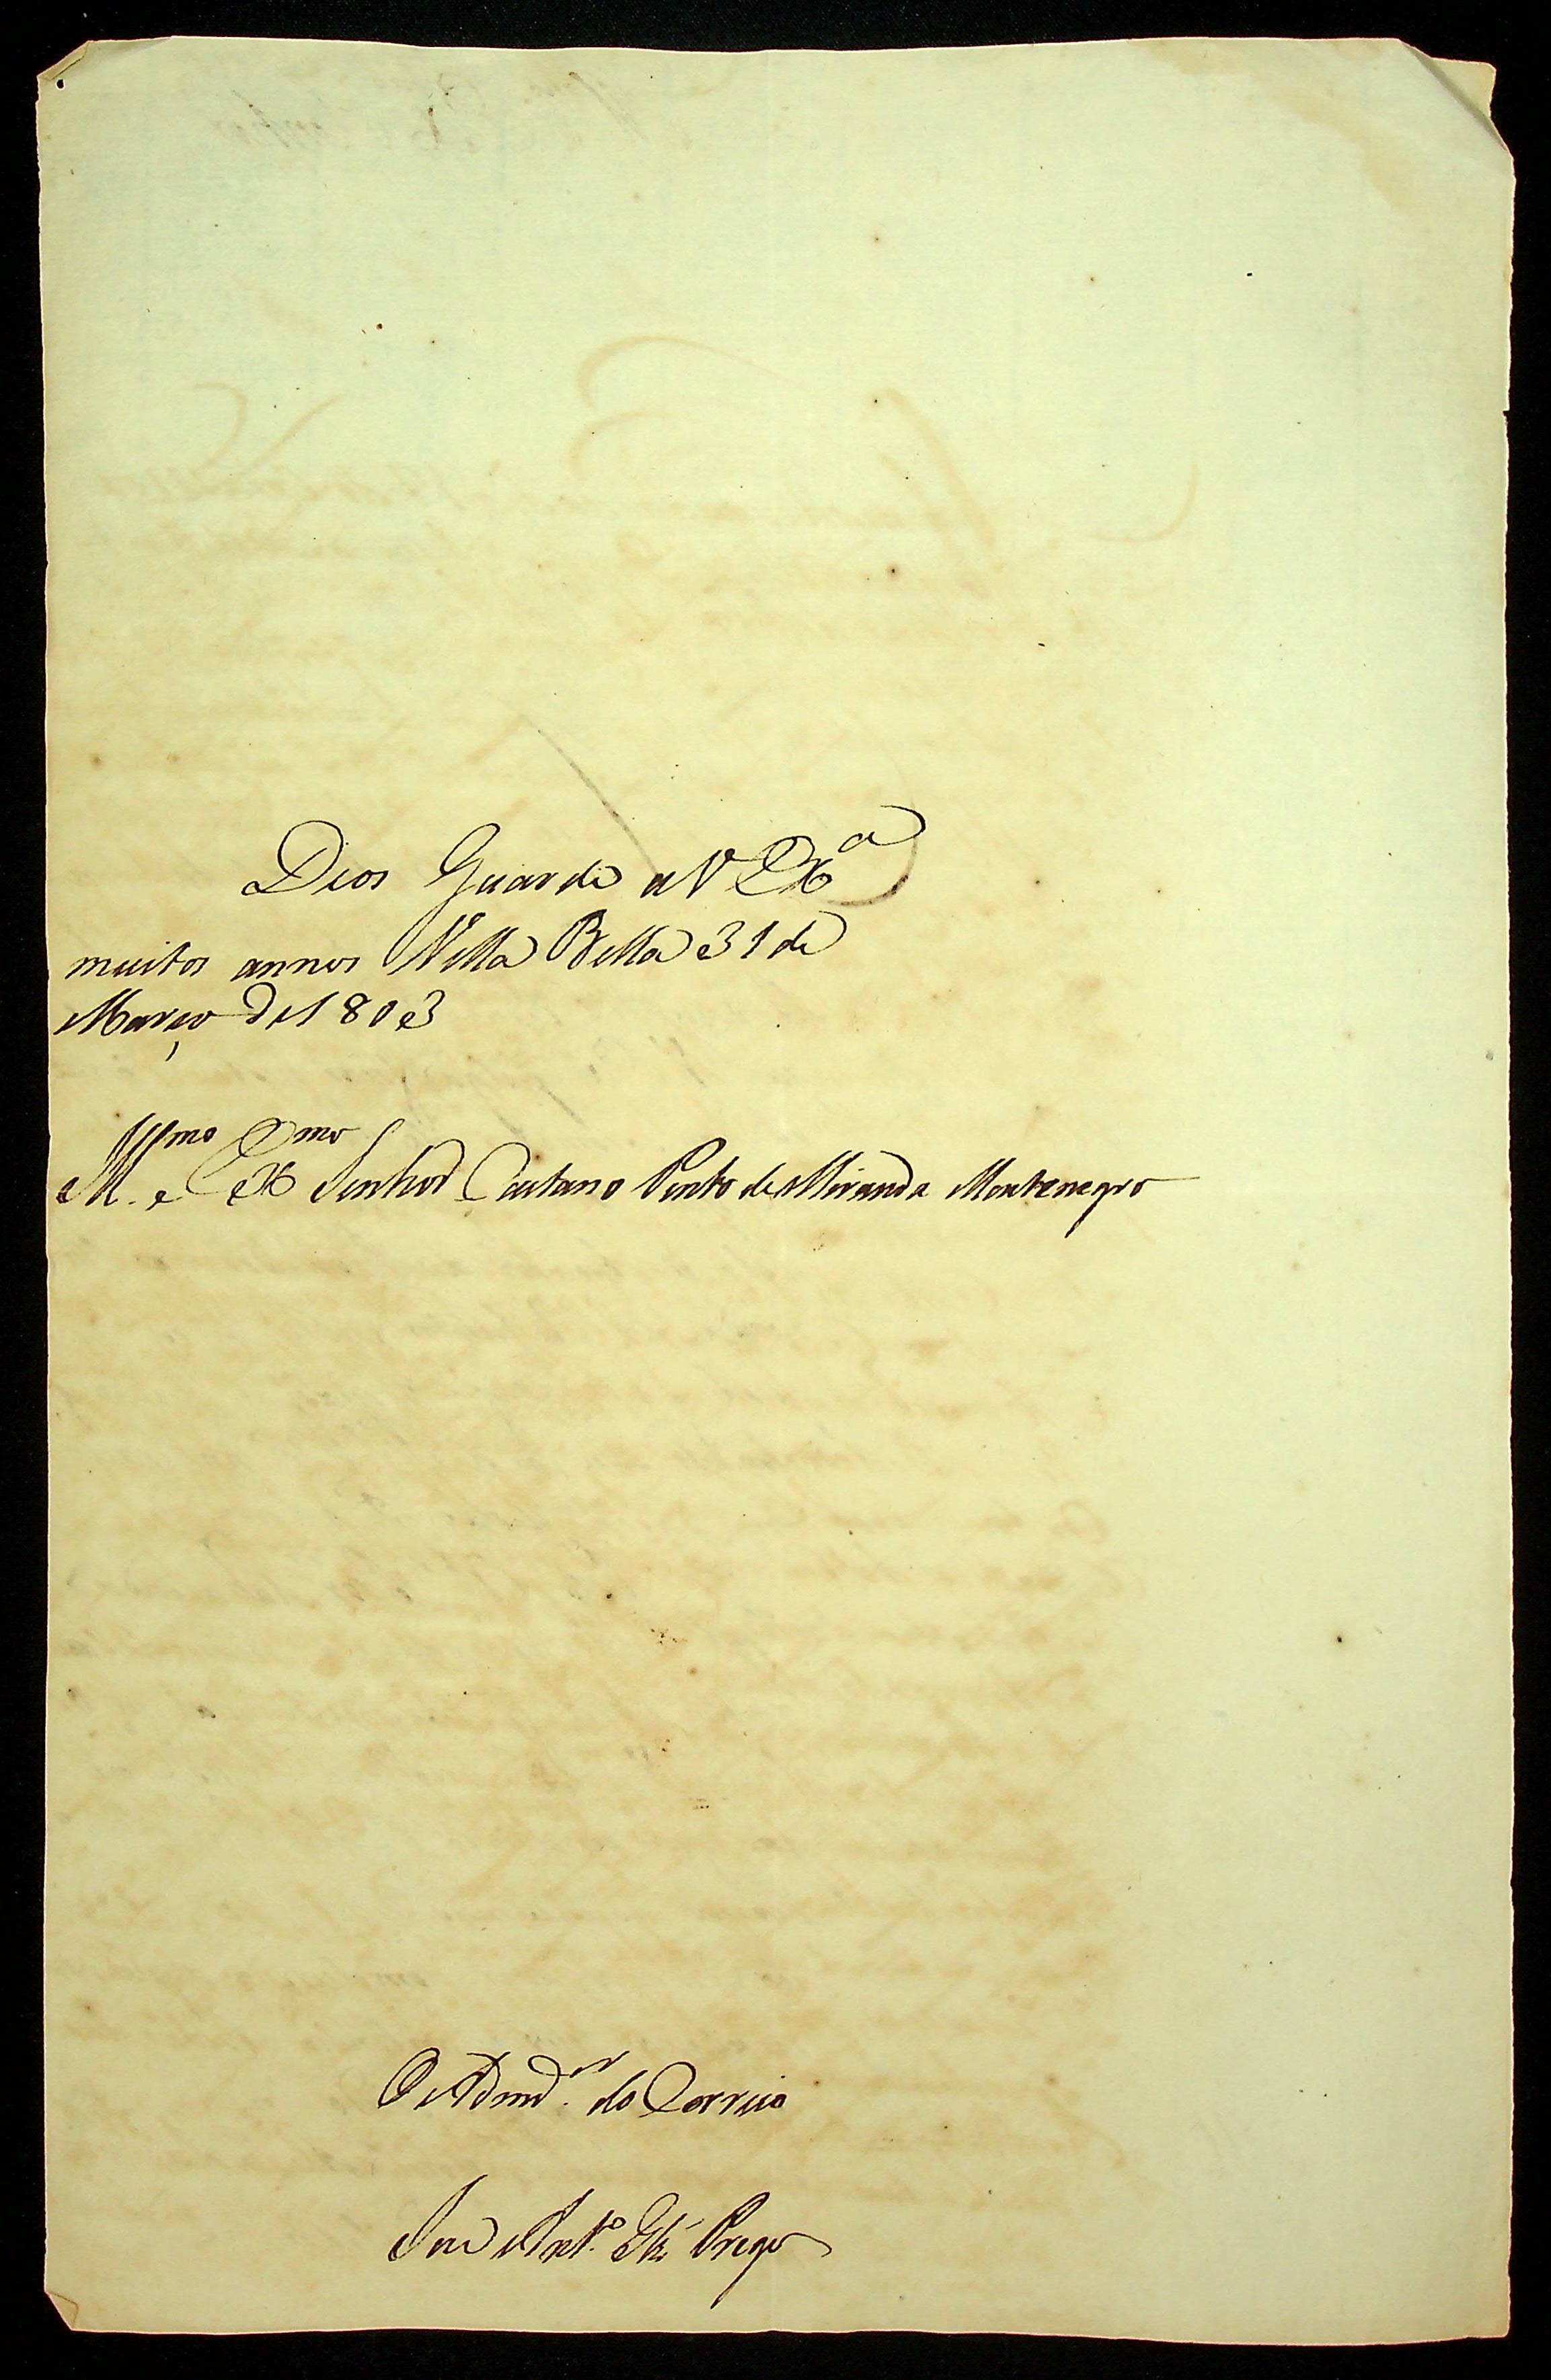 Deos Guarde a V Exª
muitos annos Villa Bella 31 de
Março de 1803
Illmo e Exmo Senhor Caetano Pinto de Miranda Montenegro
O Admdor. do Correio
Joze Antº.